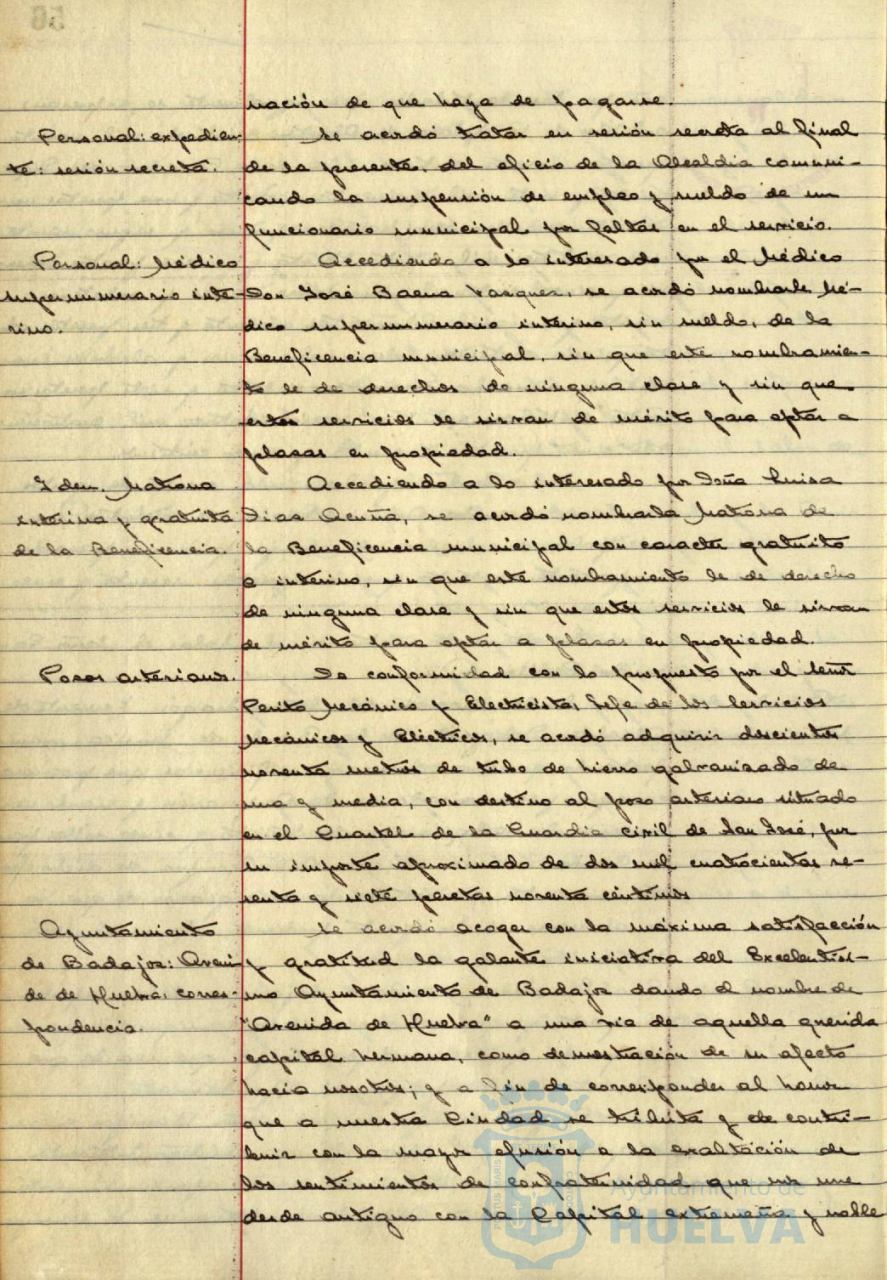 56
nación de que haya de pagarse.
Personal: expedien-
te: sesión secreta.
Se acordó tratar en sesión secreta al final
de la presente, del oficio de la Alcaldía comuni-
cando la suspensión de empleo y sueldo de un
funcionario municipal por faltas en el servicio.
Personal: Médico
supernumerario inte-
rino.
Accediendo a lo interesado por el Médico
Don José Baena Vazquez, se acordó nombrarle Mé-
dico supernumerario interino, sin sueldo, de la
Beneficencia municipal, sin que este nombramien-
to le de derechos de ninguna clase y sin que
estos servicios le sirvan de mérito para optar a
plazas en propiedad.
Idem. Matrona
interina y gratuita
de la Beneficencia.
Accediendo a lo interesado por Doña Luisa
Diaz Acuña, se acordó nombrarla Matrona de
la Beneficencia municipal con caracter gratuito
e interino, sin que este nombramiento le de derecho
de ninguna clase y sin que estos servicios le sirvan
de mérito para optar a plazas en propiedad.
Pozos artesianos.
De conformidad con lo propuesto por el Señor
Perito Mecánico y Electricista, Jefe de los Servicios
Mecánicos y Eléctricos, se acordó adquirir doscientos
noventa metros de tubo de hierro galvanizado de
una y media, con destino al pozo artesiano situado
en el Cuartel de la Guardia civil de San José, por
su importe aproximado de dos mil cuatrocientas se-
senta y siete pesetas noventa céntimos
Ayuntamiento
de Badajoz: Aveni-
da de Huelva: corres-
pondencia.
Se acordó acoger con la máxima satisfacción
y gratitud la galante iniciativa del Excelentísi-
mo Ayuntamiento de Badajoz dando el nombre de
"Avenida de Huelva" a una via de aquella querida
capital hermana, como demostración de su afecto
hacia nosotros; y a fin de corresponder al honor
que a nuestra Ciudad se tributa y de contri-
buir con la mayor efusión a la exaltación de
los sentimientos de confraternidad que nos une
desde antiguo con la Capital extremeña y noble
Ayuntamiento de
HUELVA